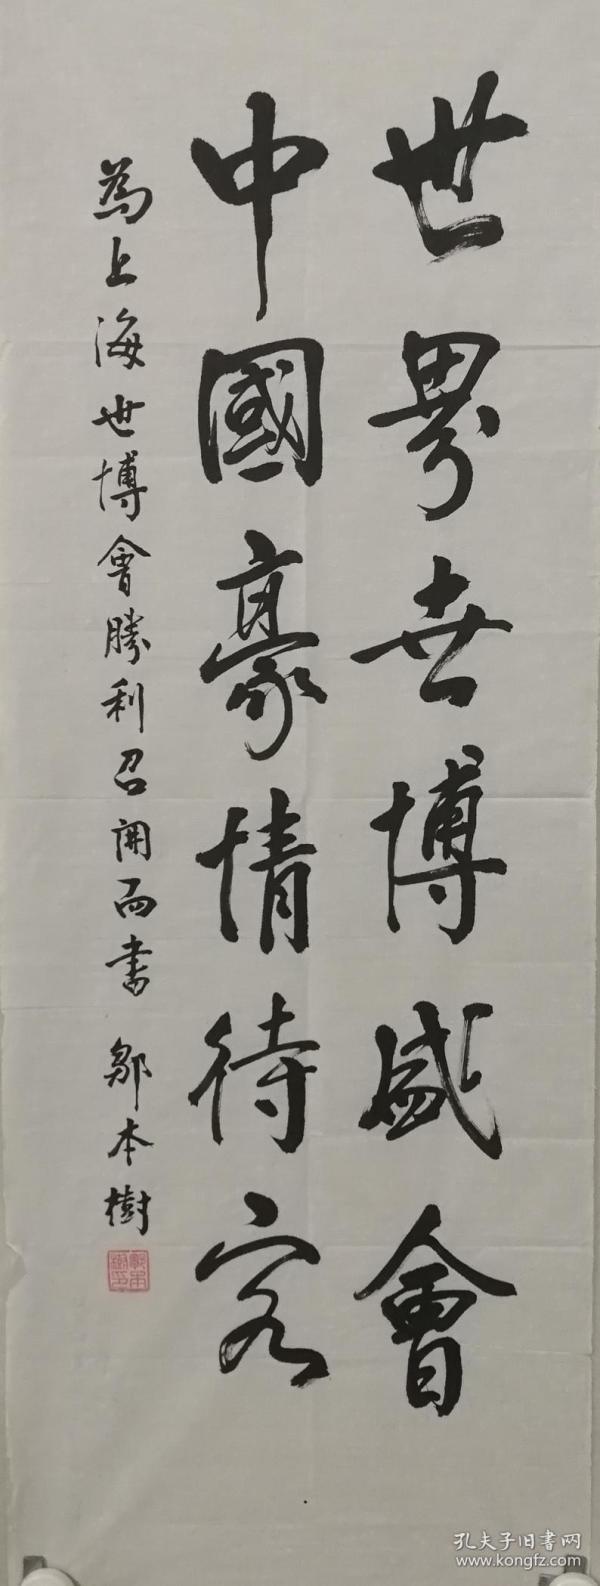 世界世博盛會
中國豪情待客
為上海世博會勝利召開而書 鄒本樹
孔夫子旧書网
www.kongfz.com